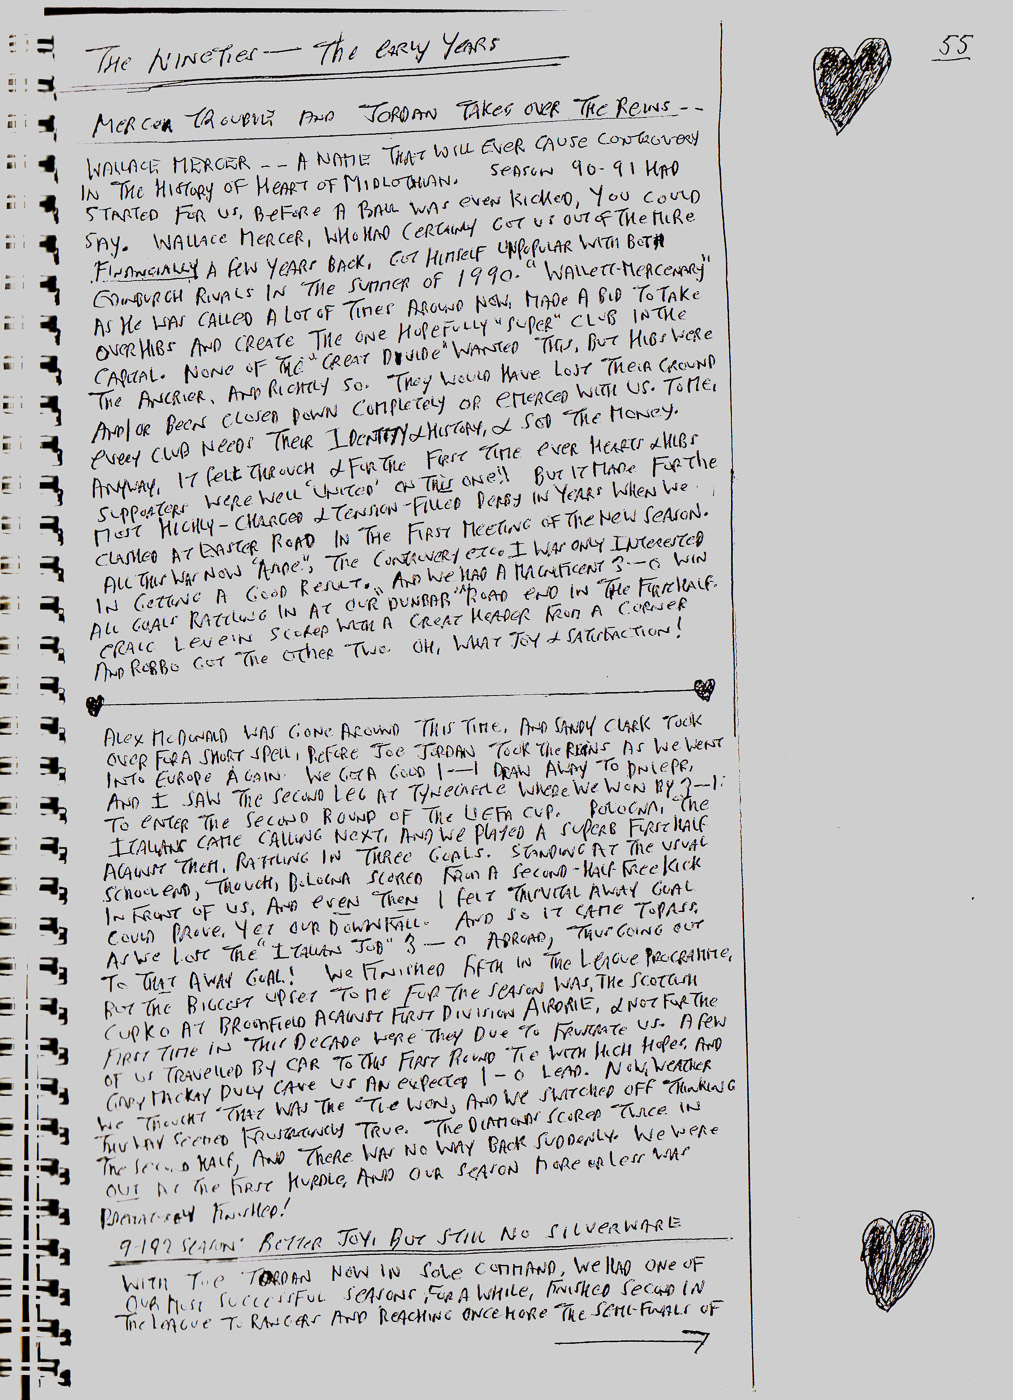 55
THE NINETIES — THE EARLY YEARS
MERCER TROUBLE AND JORDAN TAKES OVER THE REINS --
WALLACE MERCER -- A NAME THAT WILL EVER CAUSE CONTROVERY
IN THE HISTORY OF HEART OF MIDLOTHIAN. SEASON 90-91 HAD
STARTED FOR US, BEFORE A BALL WAS EVEN KICKED, YOU COULD
SAY. WALLACE MERCER, WHO HAD CERTAINLY GOT US OUT OF THE MIRE
FINANCIALLY A FEW YEARS BACK, GOT HIMSELF UNPOPULAR WITH BOTH
EDINBURGH RIVALS IN THE SUMMER OF 1990. "WALLETT-MERCENARY"
AS HE WAS CALLED A LOT OF TIMES AROUND NOW, MADE A BID TO TAKE
OVER HIBS AND CREATE THE ONE HOPEFULLY "SUPER" CLUB IN THE
CAPITAL. NONE OF THE "GREAT DIVIDE" WANTED THIS, BUT HIBS WERE
THE ANGRIER, AND RIGHTLY SO. THEY WOULD HAVE LOST THEIR GROUND
AND/OR BEEN CLOSED DOWN COMPLETELY OR EMERGED WITH US. TO ME,
EVERY CLUB NEEDS THEIR IDENTITY & HISTORY, & SOD THE MONEY.
ANYWAY, IT FELL THROUGH & FOR THE FIRST TIME EVER HEARTS & HIBS
SUPPORTERS WERE WELL 'UNITED' ON THIS ONE!! BUT IT MADE FOR THE
MOST HIGHLY-CHARGED & TENSION-FILLED DERBY IN YEARS WHEN WE
CLASHED AT EASTER ROAD IN THE FIRST MEETING OF THE NEW SEASON.
ALL THIS WAS NOW "ASIDE", THE CONTROVERY ETC. I WAS ONLY INTERESTED
IN GETTING A GOOD RESULT. AND WE HAD A MAGNIFICENT 3—0 WIN
ALL GOALS RATTLING IN AT OUR "DUNBAR" ROAD END IN THE FIRST HALF.
CRAIG LEVEIN SCORED WITH A GREAT HEADER FROM A CORNER
AND ROBBO GOT THE OTHER TWO. OH, WHAT JOY & SATISFACTION!
ALEX McDONALD WAS GONE AROUND THIS TIME, AND SANDY CLARK TOOK
OVER FOR A SHORT SPELL, BEFORE JOE JORDAN TOOK THE REINS AS WE WENT
INTO EUROPE AGAIN. WE GOT A GOOD 1—1 DRAW AWAY TO DNIEPR,
AND I SAW THE SECOND LEG AT TYNECASTLE WHERE WE WON BY 3—1.
TO ENTER THE SECOND ROUND OF THE UEFA CUP. BOLOGNA, THE
ITALIANS CAME CALLING NEXT, AND WE PLAYED A SUPERB FIRST HALF
AGAINST THEM, RATTLING IN THREE GOALS. STANDING AT THE USUAL
SCHOOL END, THOUGH, BOLOGNA SCORED FROM A SECOND-HALF FREE KICK
IN FRONT OF US, AND EVEN THEN I FELT THIS VITAL AWAY GOAL
COULD PROVE YET OUR DOWNFALL. AND SO IT CAME TO PASS,
AS WE LOST THE "ITALIAN JOB" 3—0 ABROAD, THUS GOING OUT
TO THAT AWAY GOAL! WE FINISHED FIFTH IN THE LEAGUE PROGRAMME,
BUT THE BIGGEST UPSET TO ME FOR THE SEASON WAS, THE SCOTTISH
CUP KO AT BROOMFIELD AGAINST FIRST DIVISION AIRDRIE, & NOT FOR THE
FIRST TIME IN THIS DECADE WERE THEY DUE TO FRUSTRATE US. A FEW
OF US TRAVELLED BY CAR TO THIS FIRST ROUND TIE WITH HIGH HOPES, AND
GARY MACKAY DULY GAVE US AN EXPECTED 1—0 LEAD. NOW, WEATHER
WE THOUGHT THAT WAS THE TIE WON, AND WE SWITCHED OFF THINKING
THIS WAY SEEMED FRUSTRATINGLY TRUE. THE DIAMONDS SCORED TWICE IN
THE SECOND HALF, AND THERE WAS NO WAY BACK SUDDENLY. WE WERE
OUT AT THE FIRST HURDLE, AND OUR SEASON MORE OR LESS WAS
FINISHED!
91-92 SEASON: BETTER JOY, BUT STILL NO SILVERWARE
WITH JOE JORDAN NOW IN SOLE COMMAND, WE HAD ONE OF
OUR MOST SUCCESSFUL SEASONS, FOR A WHILE, FINISHED SECOND IN
THE LEAGUE TO RANGERS AND REACHING ONCE MORE THE SEMI-FINALS OF